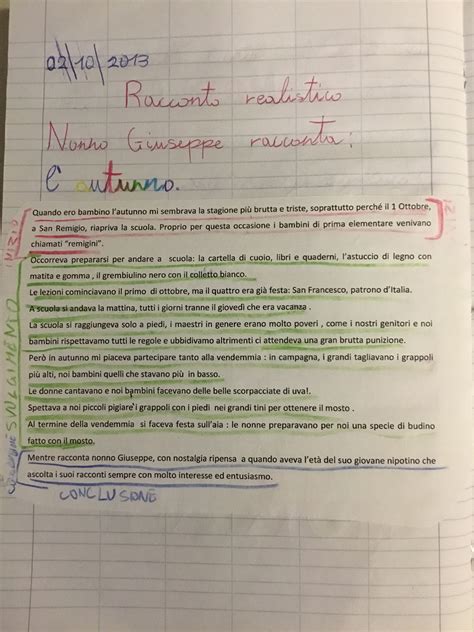 02/10/2013
Racconto realistico
Nonno Giuseppe racconta:
l'autunno.
Quando ero bambino l'autunno mi sembrava la stagione più brutta e triste, soprattutto perché il 1 Ottobre,
a San Remigio, riapriva la scuola. Proprio per questa occasione i bambini di prima elementare venivano
chiamati "remigini".
Occorreva prepararsi per andare a scuola: la cartella di cuoio, libri e quaderni, l'astuccio di legno con
matita e gomma , il grembiulino nero con il colletto bianco.
Le lezioni cominciavano il primo di ottobre, ma il quattro era già festa: San Francesco, patrono d'Italia.
A scuola si andava la mattina, tutti i giorni tranne il giovedì che era vacanza .
La scuola si raggiungeva solo a piedi, i maestri in genere erano molto poveri , come i nostri genitori e noi
bambini rispettavamo tutti le regole e ubbidivamo altrimenti ci attendeva una gran brutta punizione.
Però in autunno mi piaceva partecipare tanto alla vendemmia : in campagna, i grandi tagliavano i grappoli
più alti, noi bambini quelli che stavano più in basso.
Le donne cantavano e noi bambini facevano delle belle scorpacciate di uva!.
Spettava a noi piccoli pigiare i grappoli con i piedi nei grandi tini per ottenere il mosto .
Al termine della vendemmia si faceva festa sull'aia : le nonne preparavano per noi una specie di budino
fatto con il mosto.
Mentre racconta nonno Giuseppe, con nostalgia ripensa a quando aveva l'età del suo giovane nipotino che
ascolta i suoi racconti sempre con molto interesse ed entusiasmo.
CONCLUSIONE